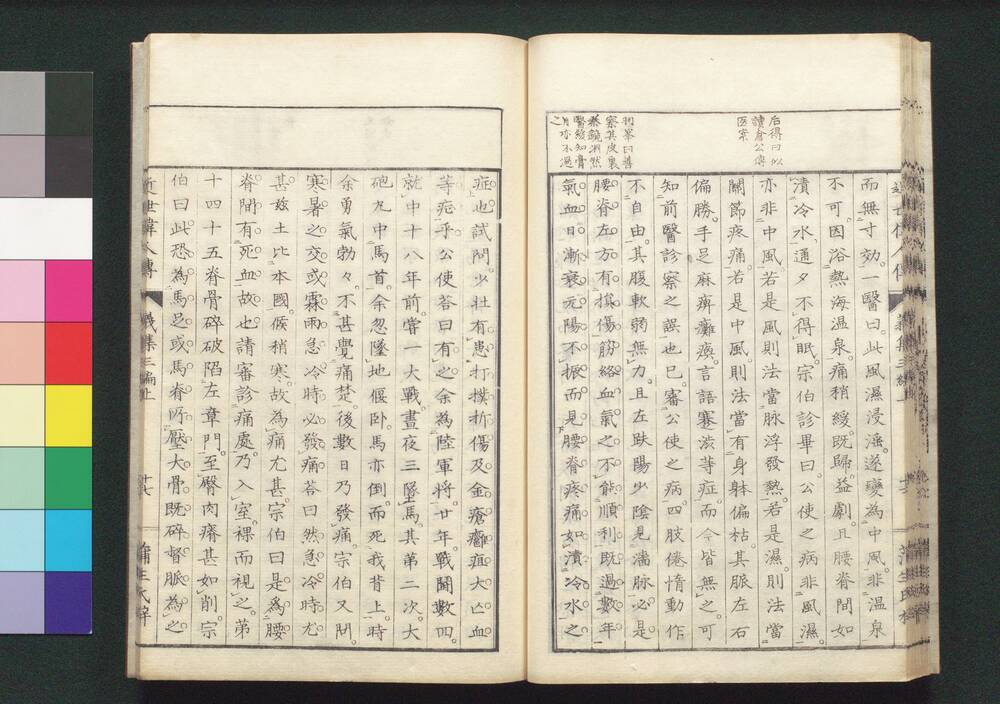 后得曰似
讀倉公傳
医案
而無寸効一醫曰此風濕浸淫遂變為中風非温泉
不可因浴熱海温泉痛稍緩既歸益劇且腰脊間如
漬冷水通夕不得眠宗伯診畢曰公使之病非風濕
亦非中風若是風則法當脉浮發熱若是濕則法當
關節疼痛若是中風則法當有身躰偏枯其脈左右
偏勝手足麻痹癱瘓言語蹇澁等症而今皆無之可
知前醫診察之誤也已審公使之病四肢倦惰動作
不自由其腹軟弱無力且左趺陽少陰見濇脉必是
腰脊左方有撲傷筋絡血氣之不能順利既過數年
氣血日漸衰元陽不振而見腰脊疼痛如漬冷水之
羽峯曰善
察其皮裏
洞然
醫知膏
亦不過
之
症也試問少壯有患打撲折傷及金瘡癰疽大亡血
等症乎公使荅曰有之余為陸軍將廿年戰鬪數回
就中十八年前嘗一大戰晝夜三墜馬其第二次大
砲丸中馬首余忽墜地偃卧馬亦倒而死我背上時
余勇氣勃々不甚覺痛楚後數日乃發痛宗伯又問
寒暑之交或霖雨急冷時必發痛荅曰然急冷時尤
甚玆土比本國候稍寒故為痛尤甚宗伯曰是為腰
脊間有死血故也請審診痛處乃入室裸而視之第
十四十五脊骨碎破陷左章門至臀肉瘠甚如削宗
伯曰此恐為馬足或馬脊所壓大骨既碎督脈為之
近世偉人傳
義集三編上
十七
蒲生氏梓